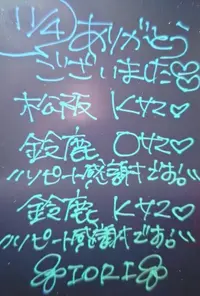 11/4 ありがとう
ございました♡
松阪 K42♡
鈴鹿 O42♡
リピート感謝です!!
鈴鹿 K42♡
リピート感謝です!!
IORI